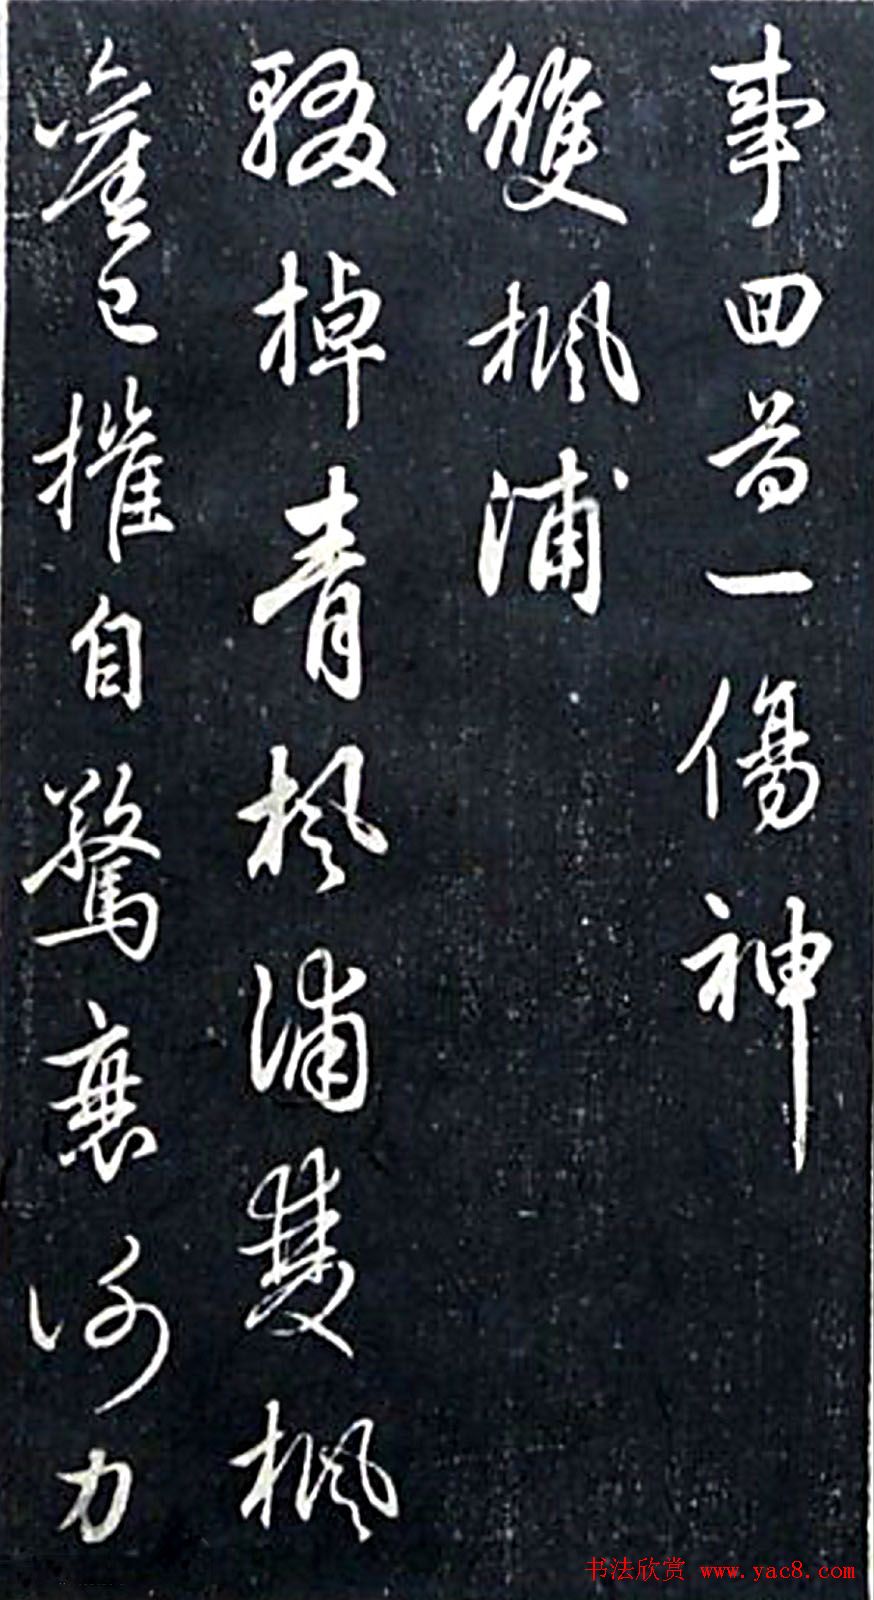 事回首一傷神
雙楓浦
輟棹青楓浦雙楓
舊已摧自驚衰謝力
书法欣赏 www.yac8.com